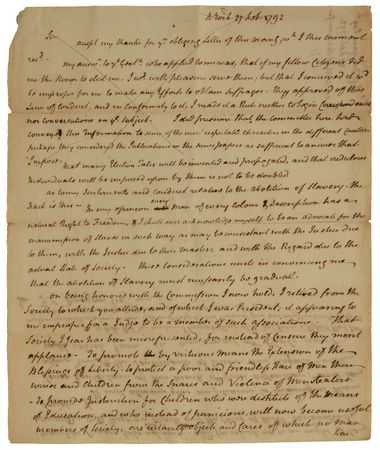 N York 27 Feb. 1792
Sir
accept my thanks for yr. obliging Letter of this morning, wh. I this moment
recd.
my answer to ye Gentn. who applied to me was, that if my fellow Citizens did
me the Honor to elect me, I wd. with pleasure serve them, but that I conceived it wd.
be improper for me to make any Efforts to obtain Suffrages. They approved of this
Line of Conduct, and in conformity to it, I made it a Rule neither to begin Correspondences
nor conversations on ye Subject. I did presume that the Committee here had
convey'd this Information to some of the most respectable characters in the different Counties
perhaps they considered the Publications in the Newspapers as sufficient to answer that
Purpose
that many Election Tales will be invented and propagated, and that credulous
Individuals will be imposed upon by them is not to be doubted
as to my Sentiments and conduct relative to the abolition of Slavery the
Fact is this — In my opinion every man of every colour & Description has a
natural Right to Freedom, & I shall ever acknowledge myself to be an advocate for the
manumission of Slaves in such way as may be consistent with the Justice due
to them, with the Justice due to their Master, and with the Regard due to the
actual State of Society. These considerations unite in convincing me
that the abolition of Slavery must necessarily be gradual.
on being honored with the Commission I now hold, I retired from the
Society to which you allude, and of which I was President, it appearing to
me improper for a Judge to be a member of such associations. That
Society I fear has been misrepresented, for instead of Censure they merit
applause. To promote by virtuous means the Extension of the
blessings of Liberty. to protect a poor and friendless Race of Men their
wives and Children from the Snares and Violence of Men Stealers
— To provide Instruction for Children who were destitute of the means
of Education, and who instead of pernicious, will now become useful
members of Society, are certainly objects and Cares of which no man
has